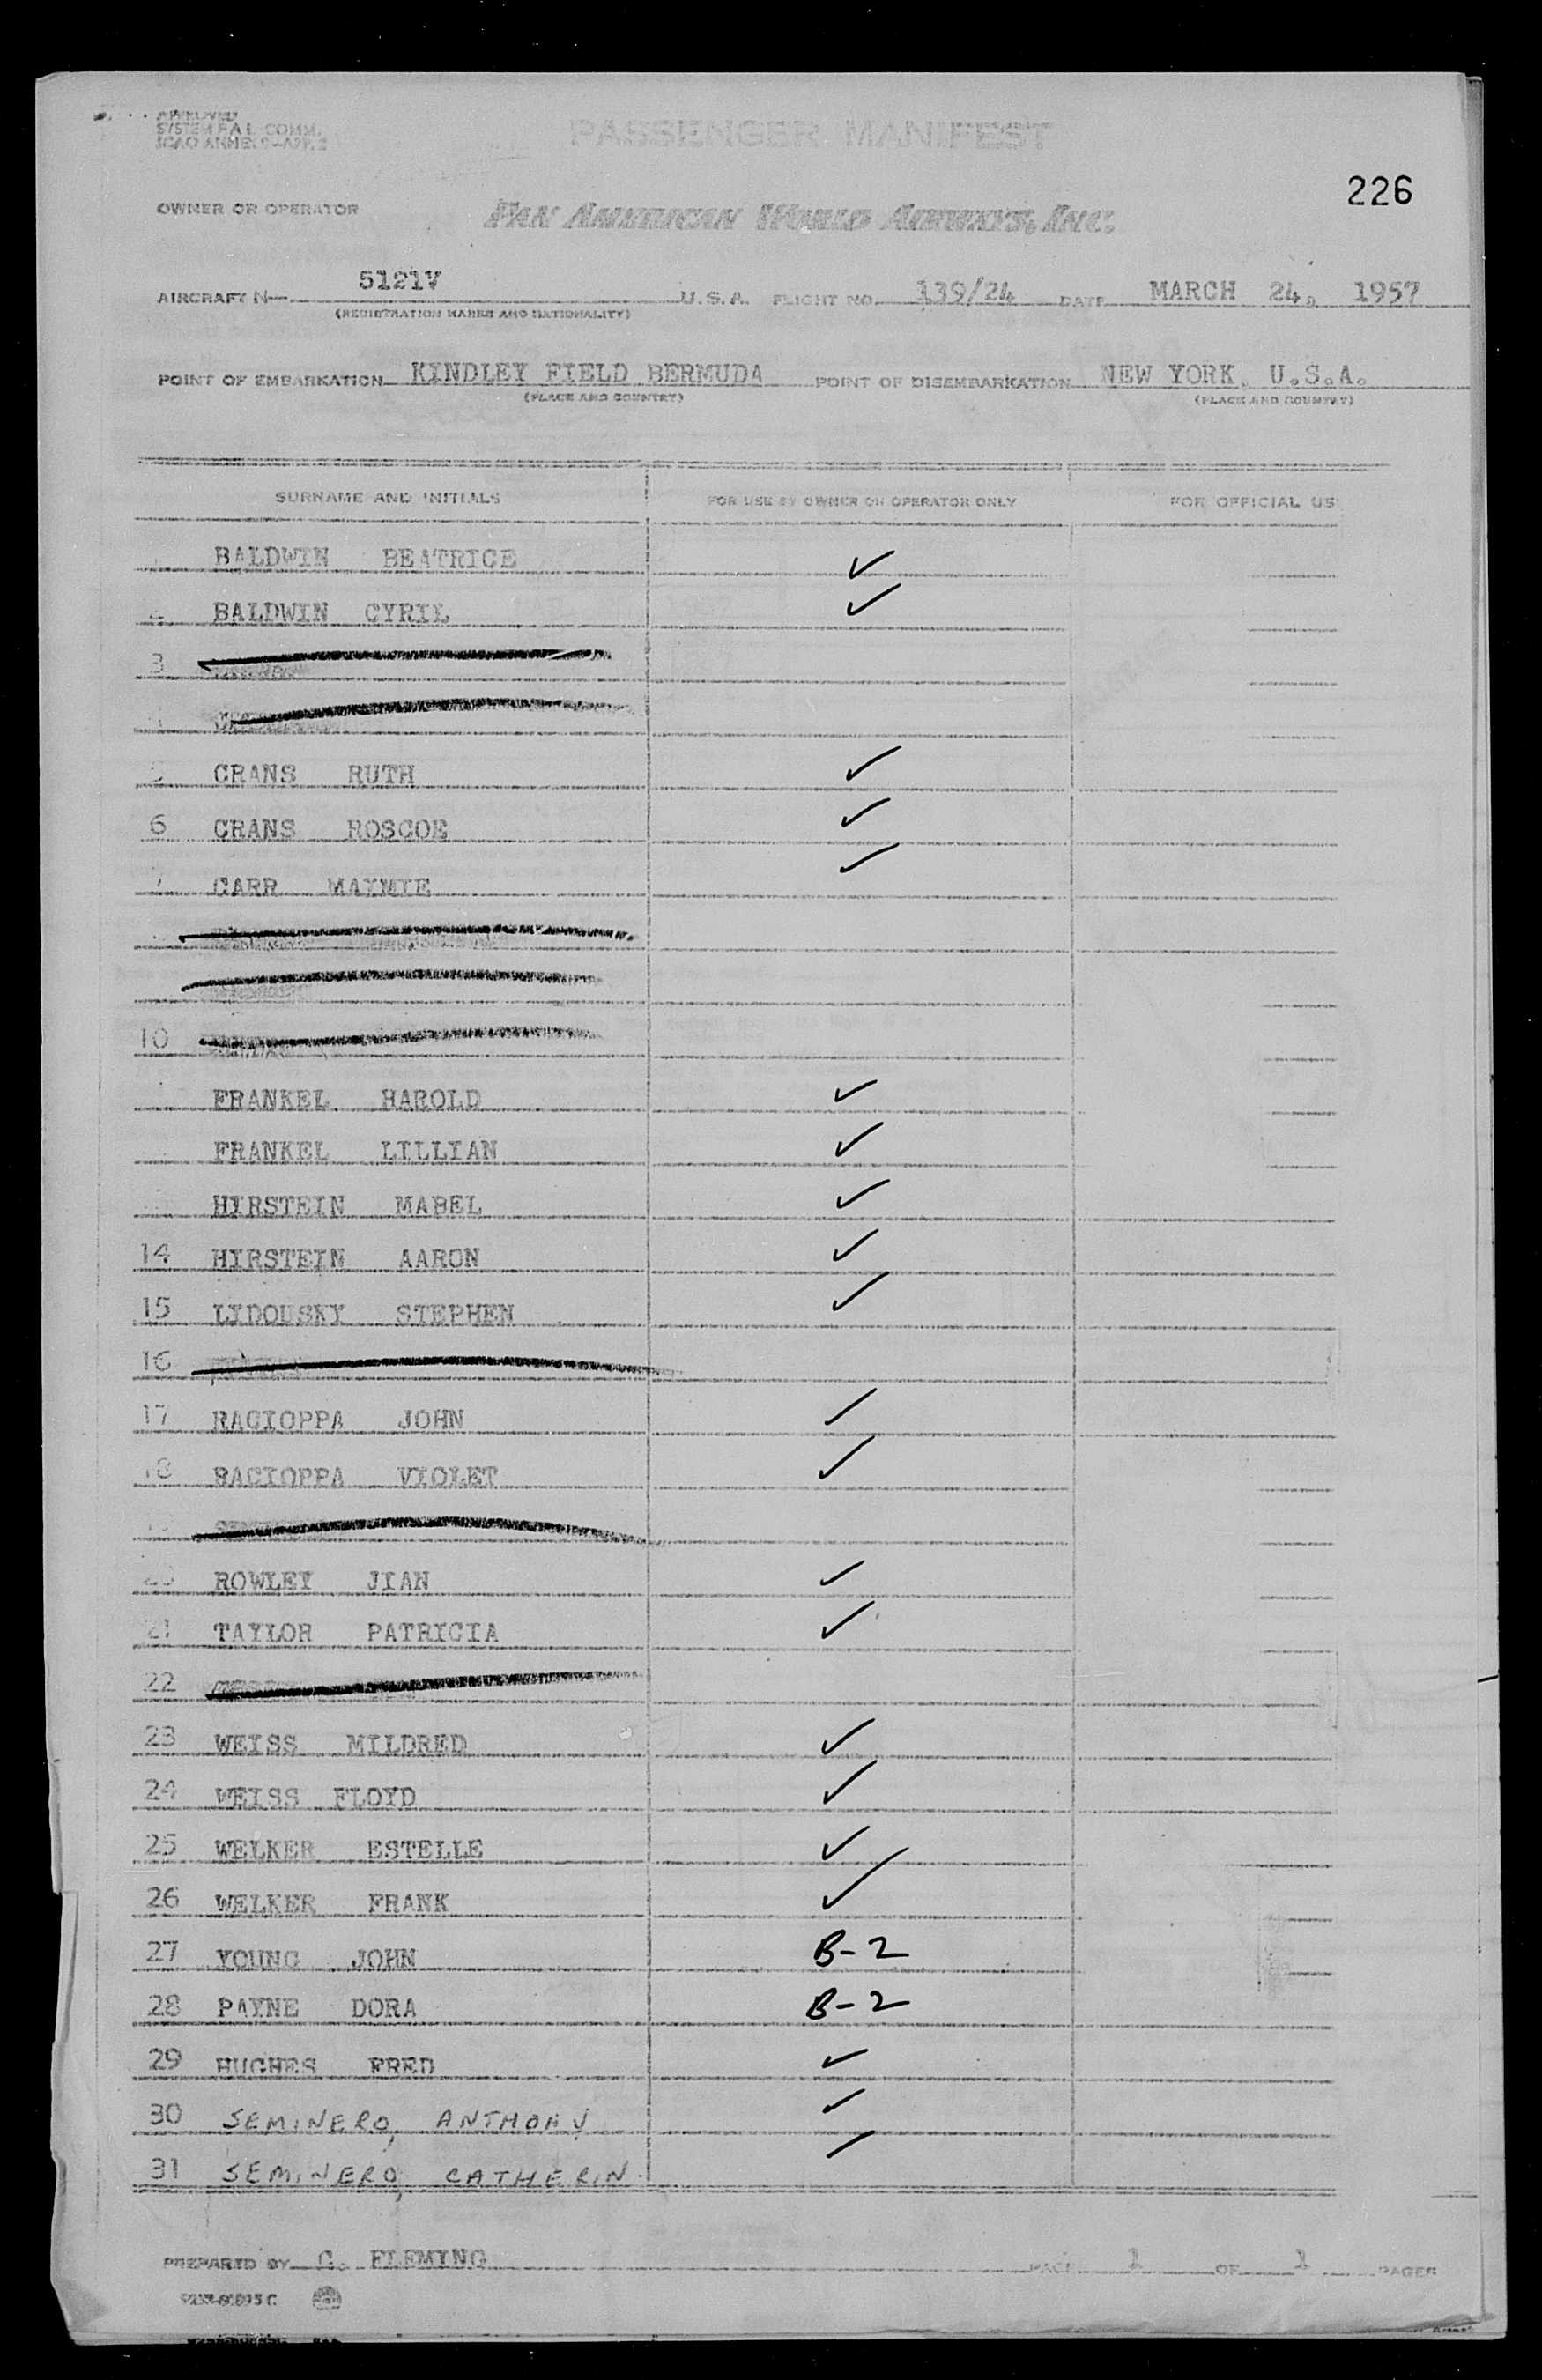 APPROVED
SYSTEM F.A.L. COMM.
ICAO ANNEX 9-APP. 2
PASSENGER MANIFEST
226
OWNER OR OPERATOR
PAN AMERICAN WORLD AIRWAYS, INC.
AIRCRAFT N- 5121V U.S.A. FLIGHT NO. 139/24 DATE MARCH 24, 1957
(REGISTRATION MARKS AND NATIONALITY)
POINT OF EMBARKATION KINDLEY FIELD BERMUDA POINT OF DISEMBARKATION NEW YORK, U.S.A.
(PLACE AND COUNTRY) (PLACE AND COUNTRY)
SURNAME AND INITIALS FOR USE BY OWNER OR OPERATOR ONLY FOR OFFICIAL US
BALDWIN BEATRICE ✓
BALDWIN CYRIL ✓
3
5 CRANS RUTH ✓
6 CRANS ROSCOE ✓
7 CARR MAYMIE ✓
10
FRANKEL HAROLD ✓
FRANKEL LILLIAN ✓
HIRSTEIN MABEL ✓
14 HIRSTEIN AARON ✓
15 LIDOUSKY STEPHEN ✓
16
17 RACIOPPA JOHN ✓
18 RACIOPPA VIOLET ✓
20 ROWLEY JIAN ✓
21 TAYLOR PATRICIA ✓
22
23 WEISS MILDRED ✓
24 WEISS FLOYD ✓
25 WELKER ESTELLE ✓
26 WELKER FRANK ✓
27 YOUNG JOHN B-2
28 PAYNE DORA B-2
29 HUGHES FRED ✓
30 SEMINERO, ANTHONY ✓
31 SEMINERO, CATHERIN ✓
PREPARED BY C. FLEMING PAGE 1 OF 1 PAGES